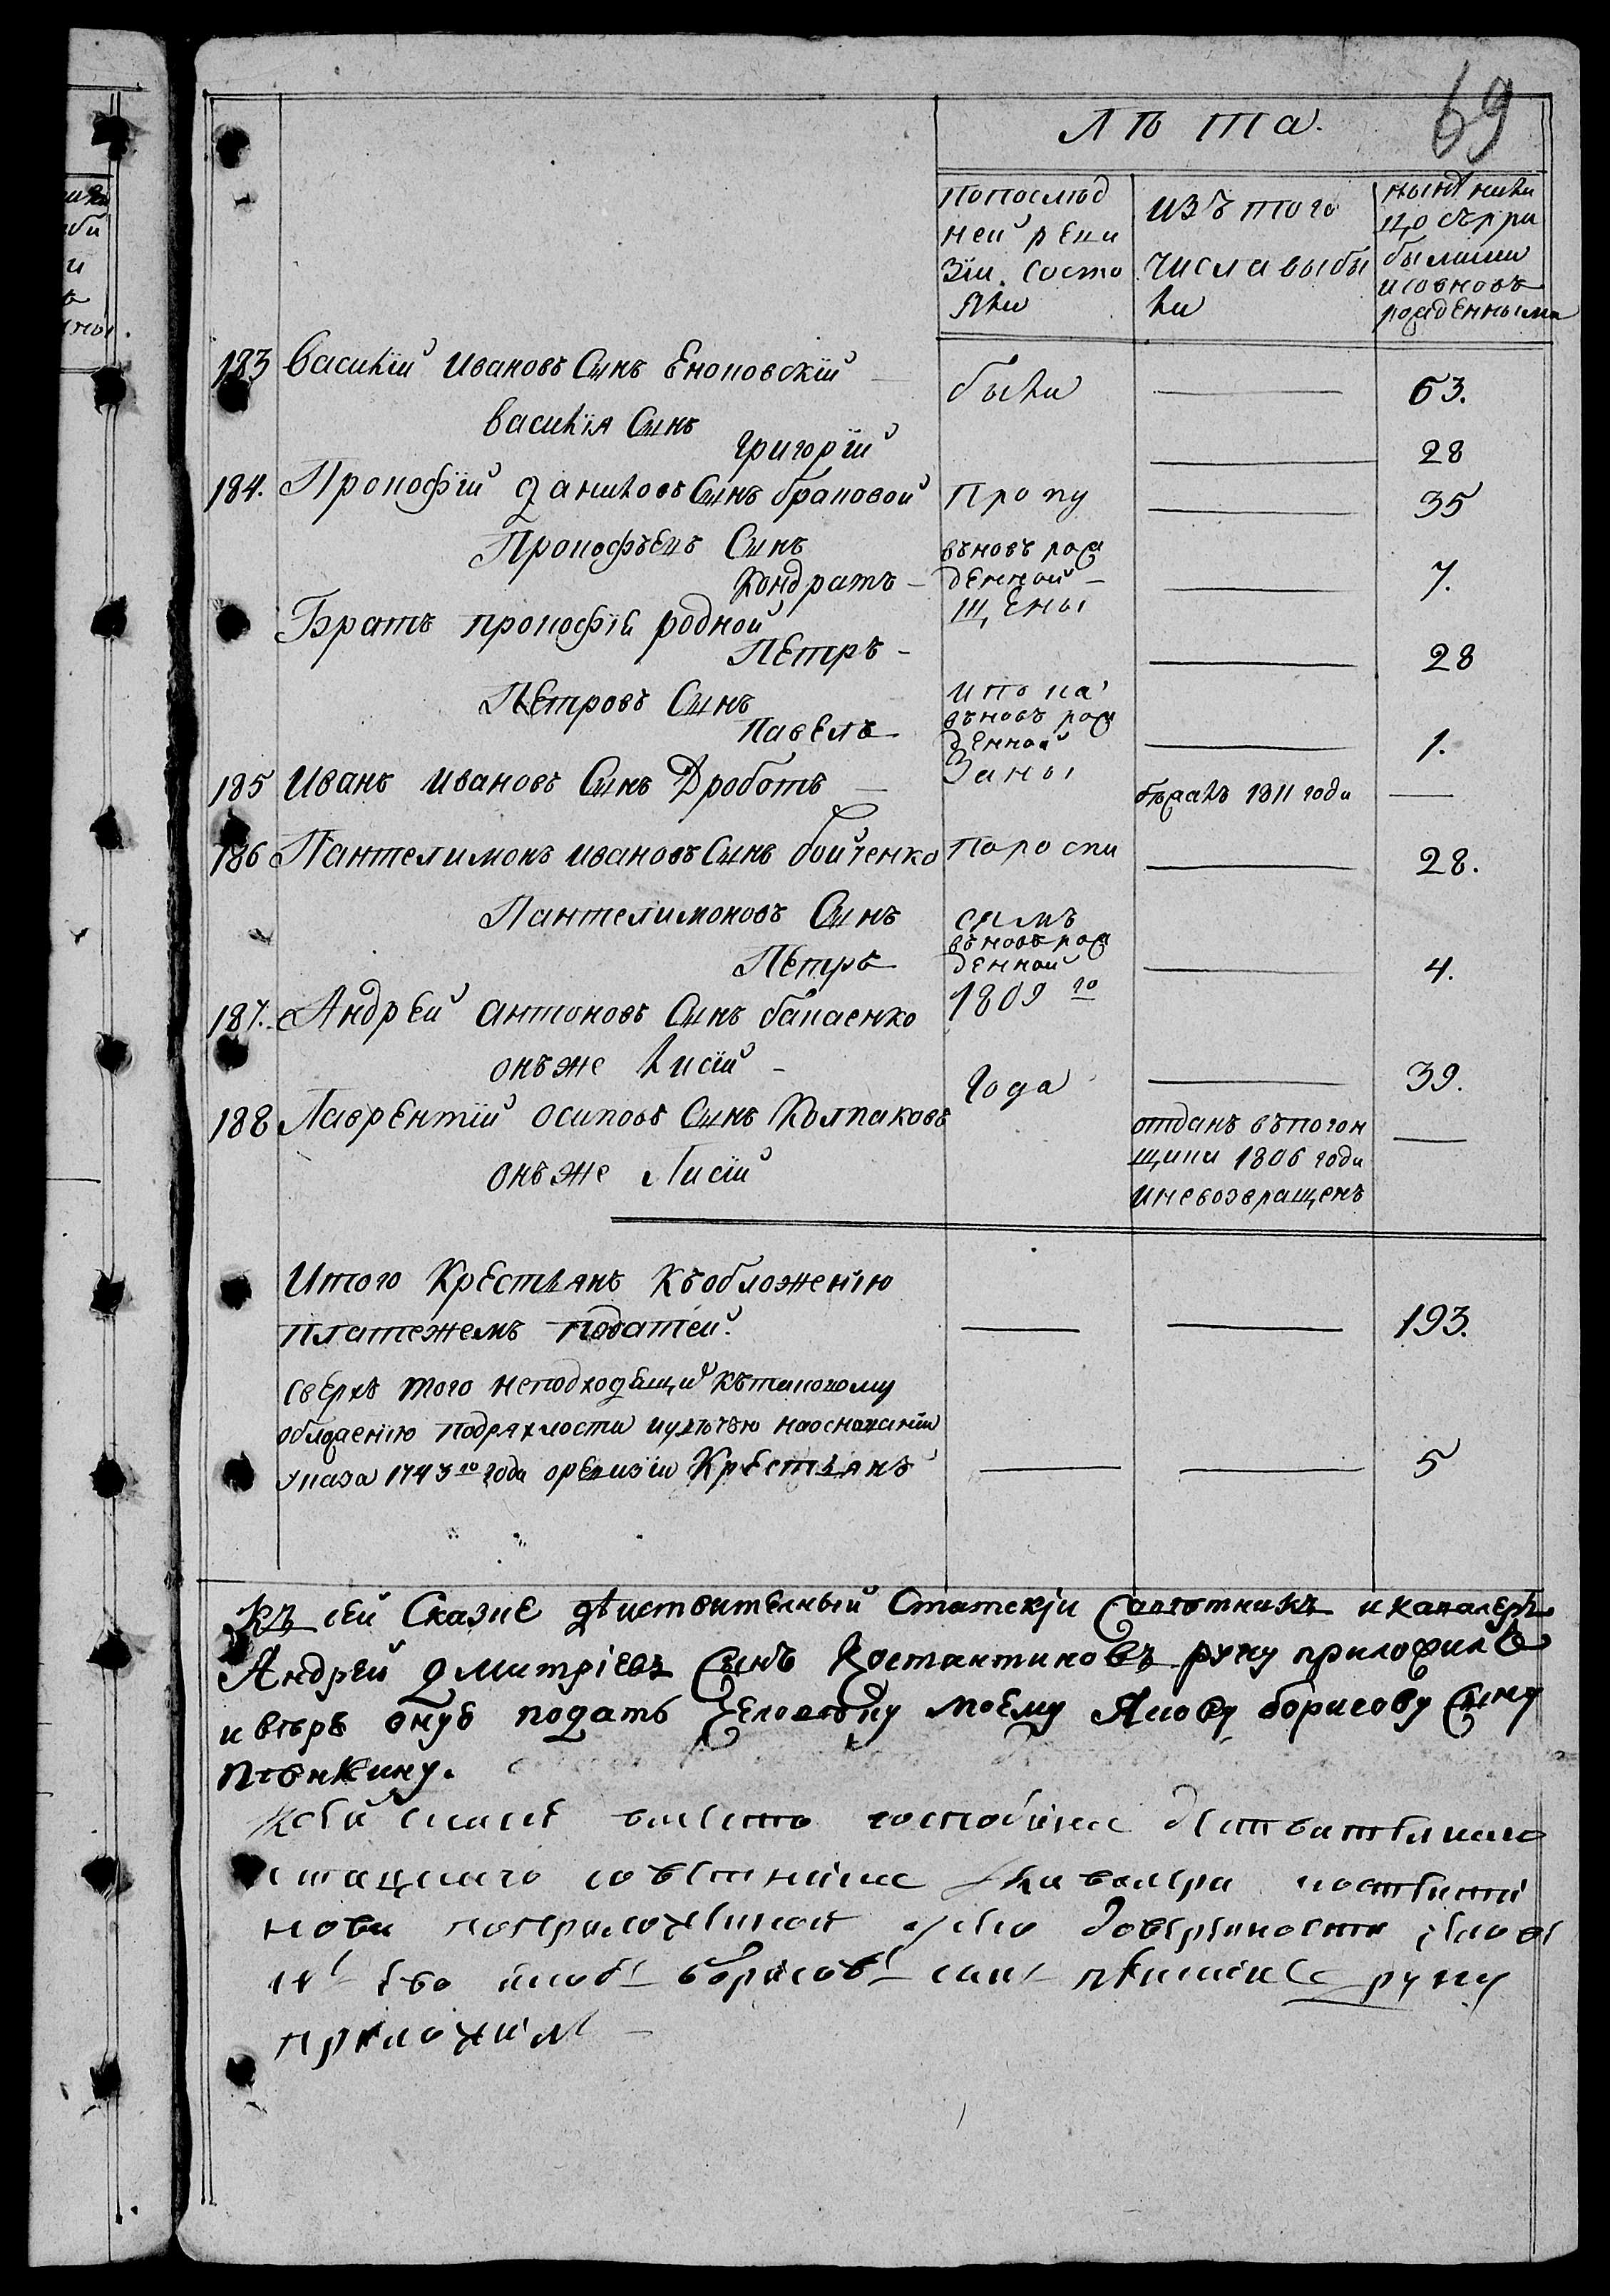 69
Лѣта.
попослѣд
ней реви
зіи состо
яли
изъ того
числа выбы
ли
нынѣ на ли
цо съ при
былыми
и совновь
рожденными
183 Василій Ивановъ Сынъ Еноповскій — были — 63.
Василія Сынъ
Григорій — 28
184. Прокофій Даниловъ Сынъ браповой Пропу — 35
Прокофьевъ Сынъ вновь рож
Кондратъ — денной — 7.
Братъ прокофія родной щены
Петръ — 28
Петровъ Сынъ и по на
Павелъ вновь рож
денной — 1.
185 Иванъ Ивановъ Сынъ Дроботъ — Заны бежалъ 1811 года —
186 Пантелимонъ Ивановъ Сынъ бойченко по роспи — 28.
Пантелимоновъ Сынъ
Петръ вновь рож
денной — 4.
187. Андрей антоновъ Сынъ бапаенко 1809 го
онъ же Лисій — Года — 39.
188 Лаврентій осиповъ Сынъ Колпаковъ отданъ въ погон —
онъ же Лисій щики 1806 года
и невозвращенъ
Итого Крестьянъ къ обложенію
платежемъ податей. — — 193.
Сверхъ того неподходящи къ таковому
обложенію по дряхлости и увѣчью на основаніи
указа 1743 го года о ревизіи Крестьянъ — — 5
Къ сей Сказке дѣиствителный Статскіи Советникъ и кавалеръ
Андрей Дмитріевъ Сынъ Костантиновъ руку приложилъ
и вѣрю оную подать человѣку моему Якову борисову Сыну
Пенкину.
К сей сказке вместо господина действителнаго
стацкаго советника и кавалера костенти
нова по приложенной у сего доверенности челове
къ ево яковъ борисовъ сынъ пенкинъ руку
приложилъ —